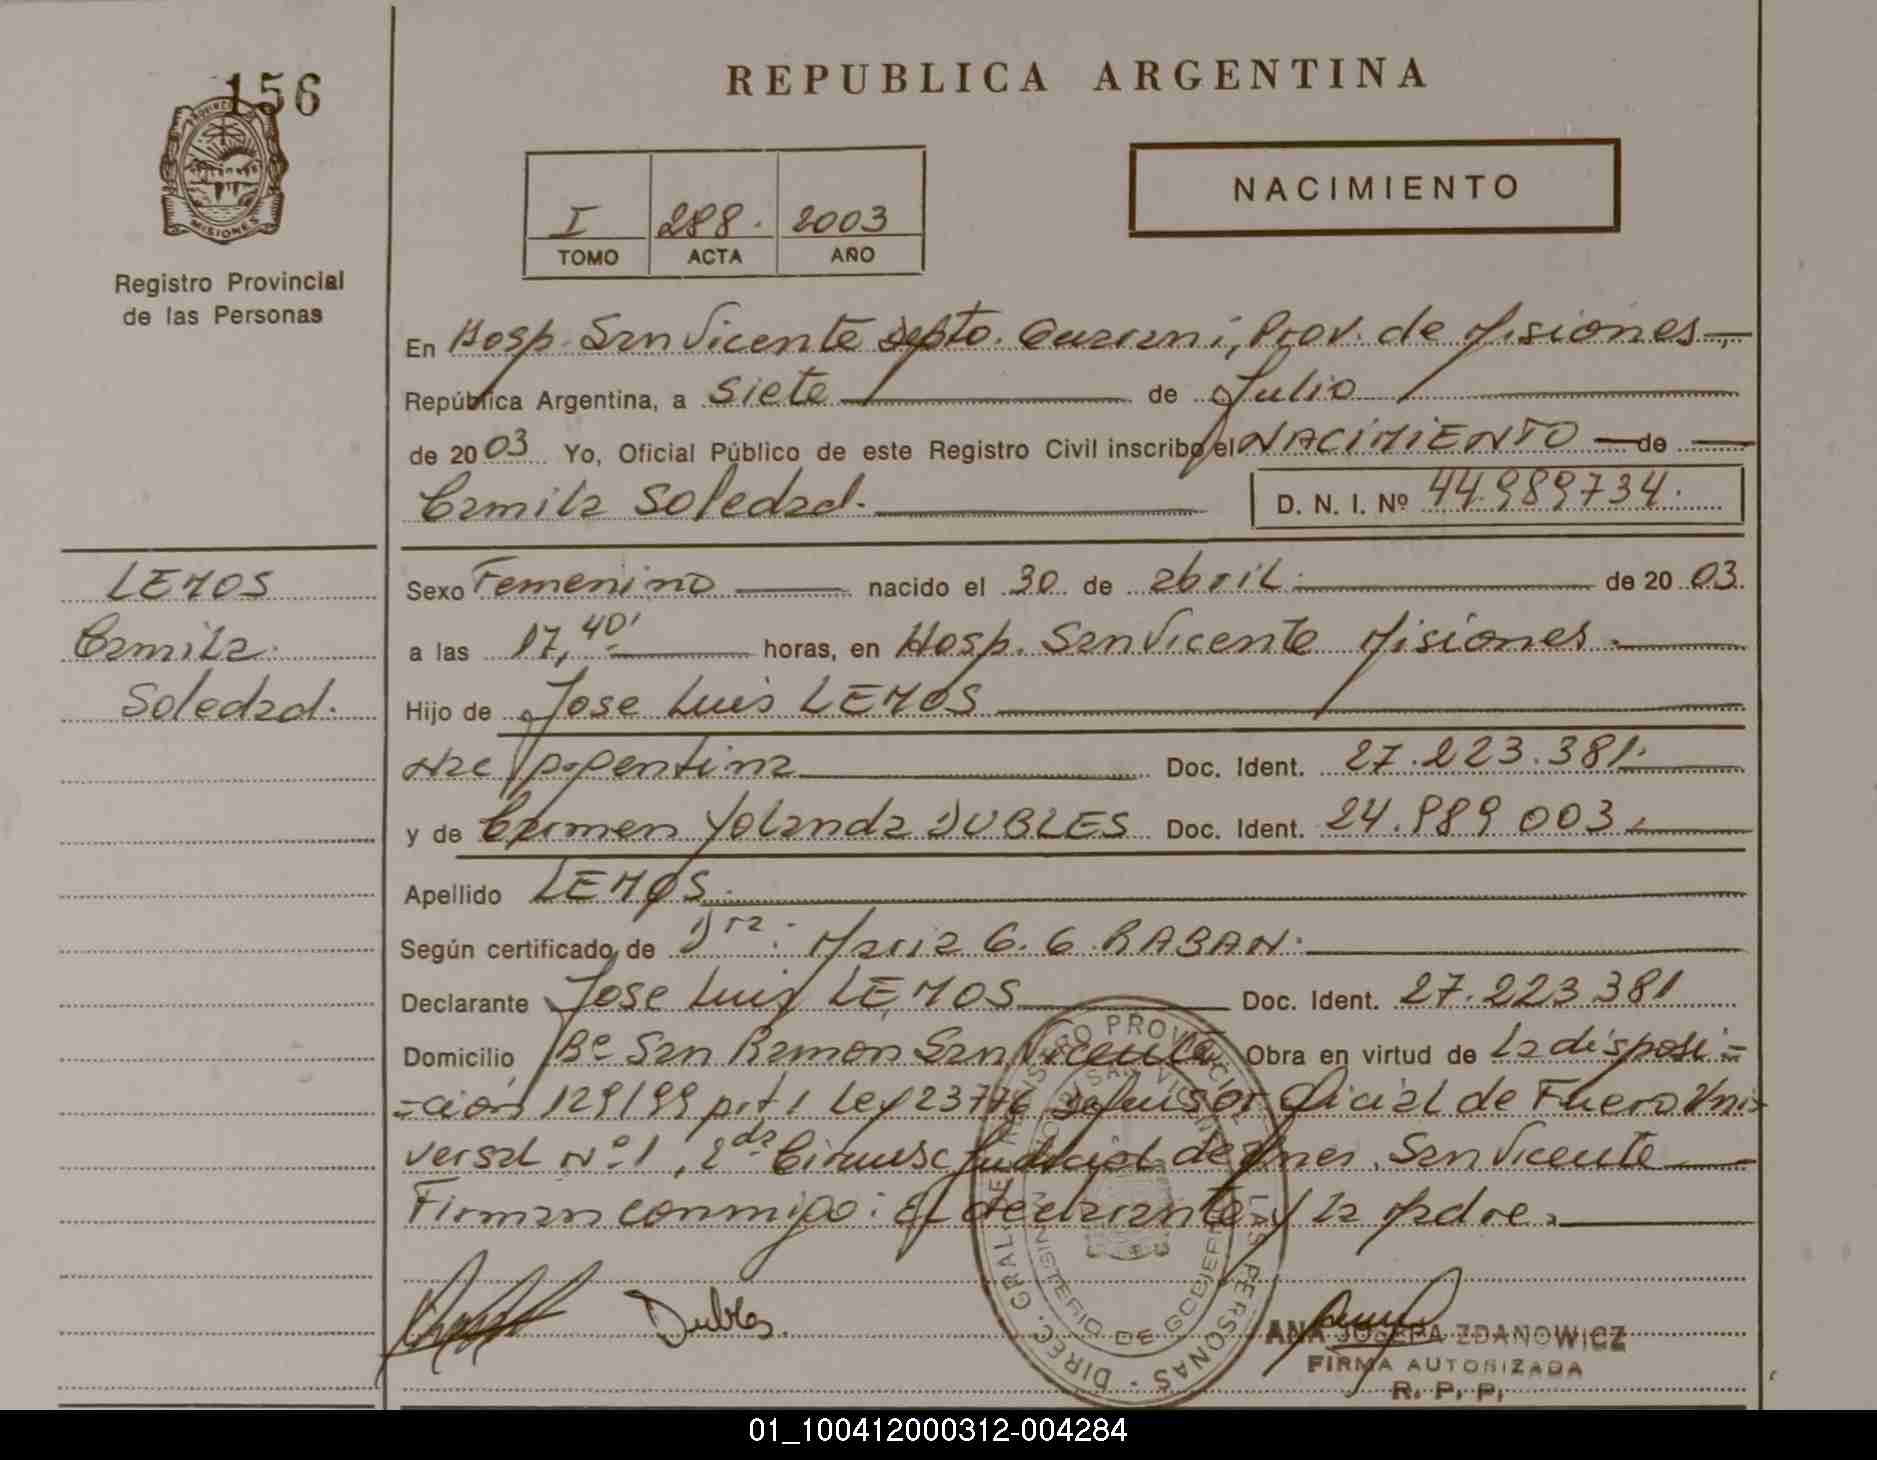 156
REPUBLICA ARGENTINA
PROVINCIA
MISIONES
Registro Provincial
de las Personas
I 288. 2003
TOMO ACTA AÑO
NACIMIENTO
En Hosp. San Vicente Depto. Guarani, Prov. de Misiones
República Argentina, a siete de Julio
de 2003 Yo, Oficial Público de este Registro Civil inscribo el NACIMIENTO de
Camila Soledad. D. N. I. Nº 44.989734.
LEMOS
Camila
Soledad.
Sexo Femenino nacido el 30 de abril de 2003.
a las 17,40' horas, en Hosp. San Vicente Misiones.
Hijo de Jose Luis LEMOS
Nac Argentina Doc. Ident. 27.223.381.
y de Carmen Yolanda DUBLES Doc. Ident. 24.989 003.
Apellido LEMOS.
Según certificado de Dra: Maria G. G. RABAN.
Declarante Jose Luis LEMOS Doc. Ident. 27.223 381
Domicilio Bº San Ramon San Vicente Obra en virtud de la disposi=
=ción 129/99 art 1 Ley 23776 Defensor Oficial de Fuero Uni
versal Nº 1, 2da Circunsc Judicial de Mnes, San Vicente
Firman conmigo: El declarante y la Madre.
Dubles.
DIREC. GRAL. DE REGISTRO PROVINCIAL DE LAS PERSONAS
MINISTERIO DE GOBIERNO
SAN VICENTE
ANA JOSEFA ZDANOWICZ
FIRMA AUTORIZADA
R. P. P.
01_100412000312-004284